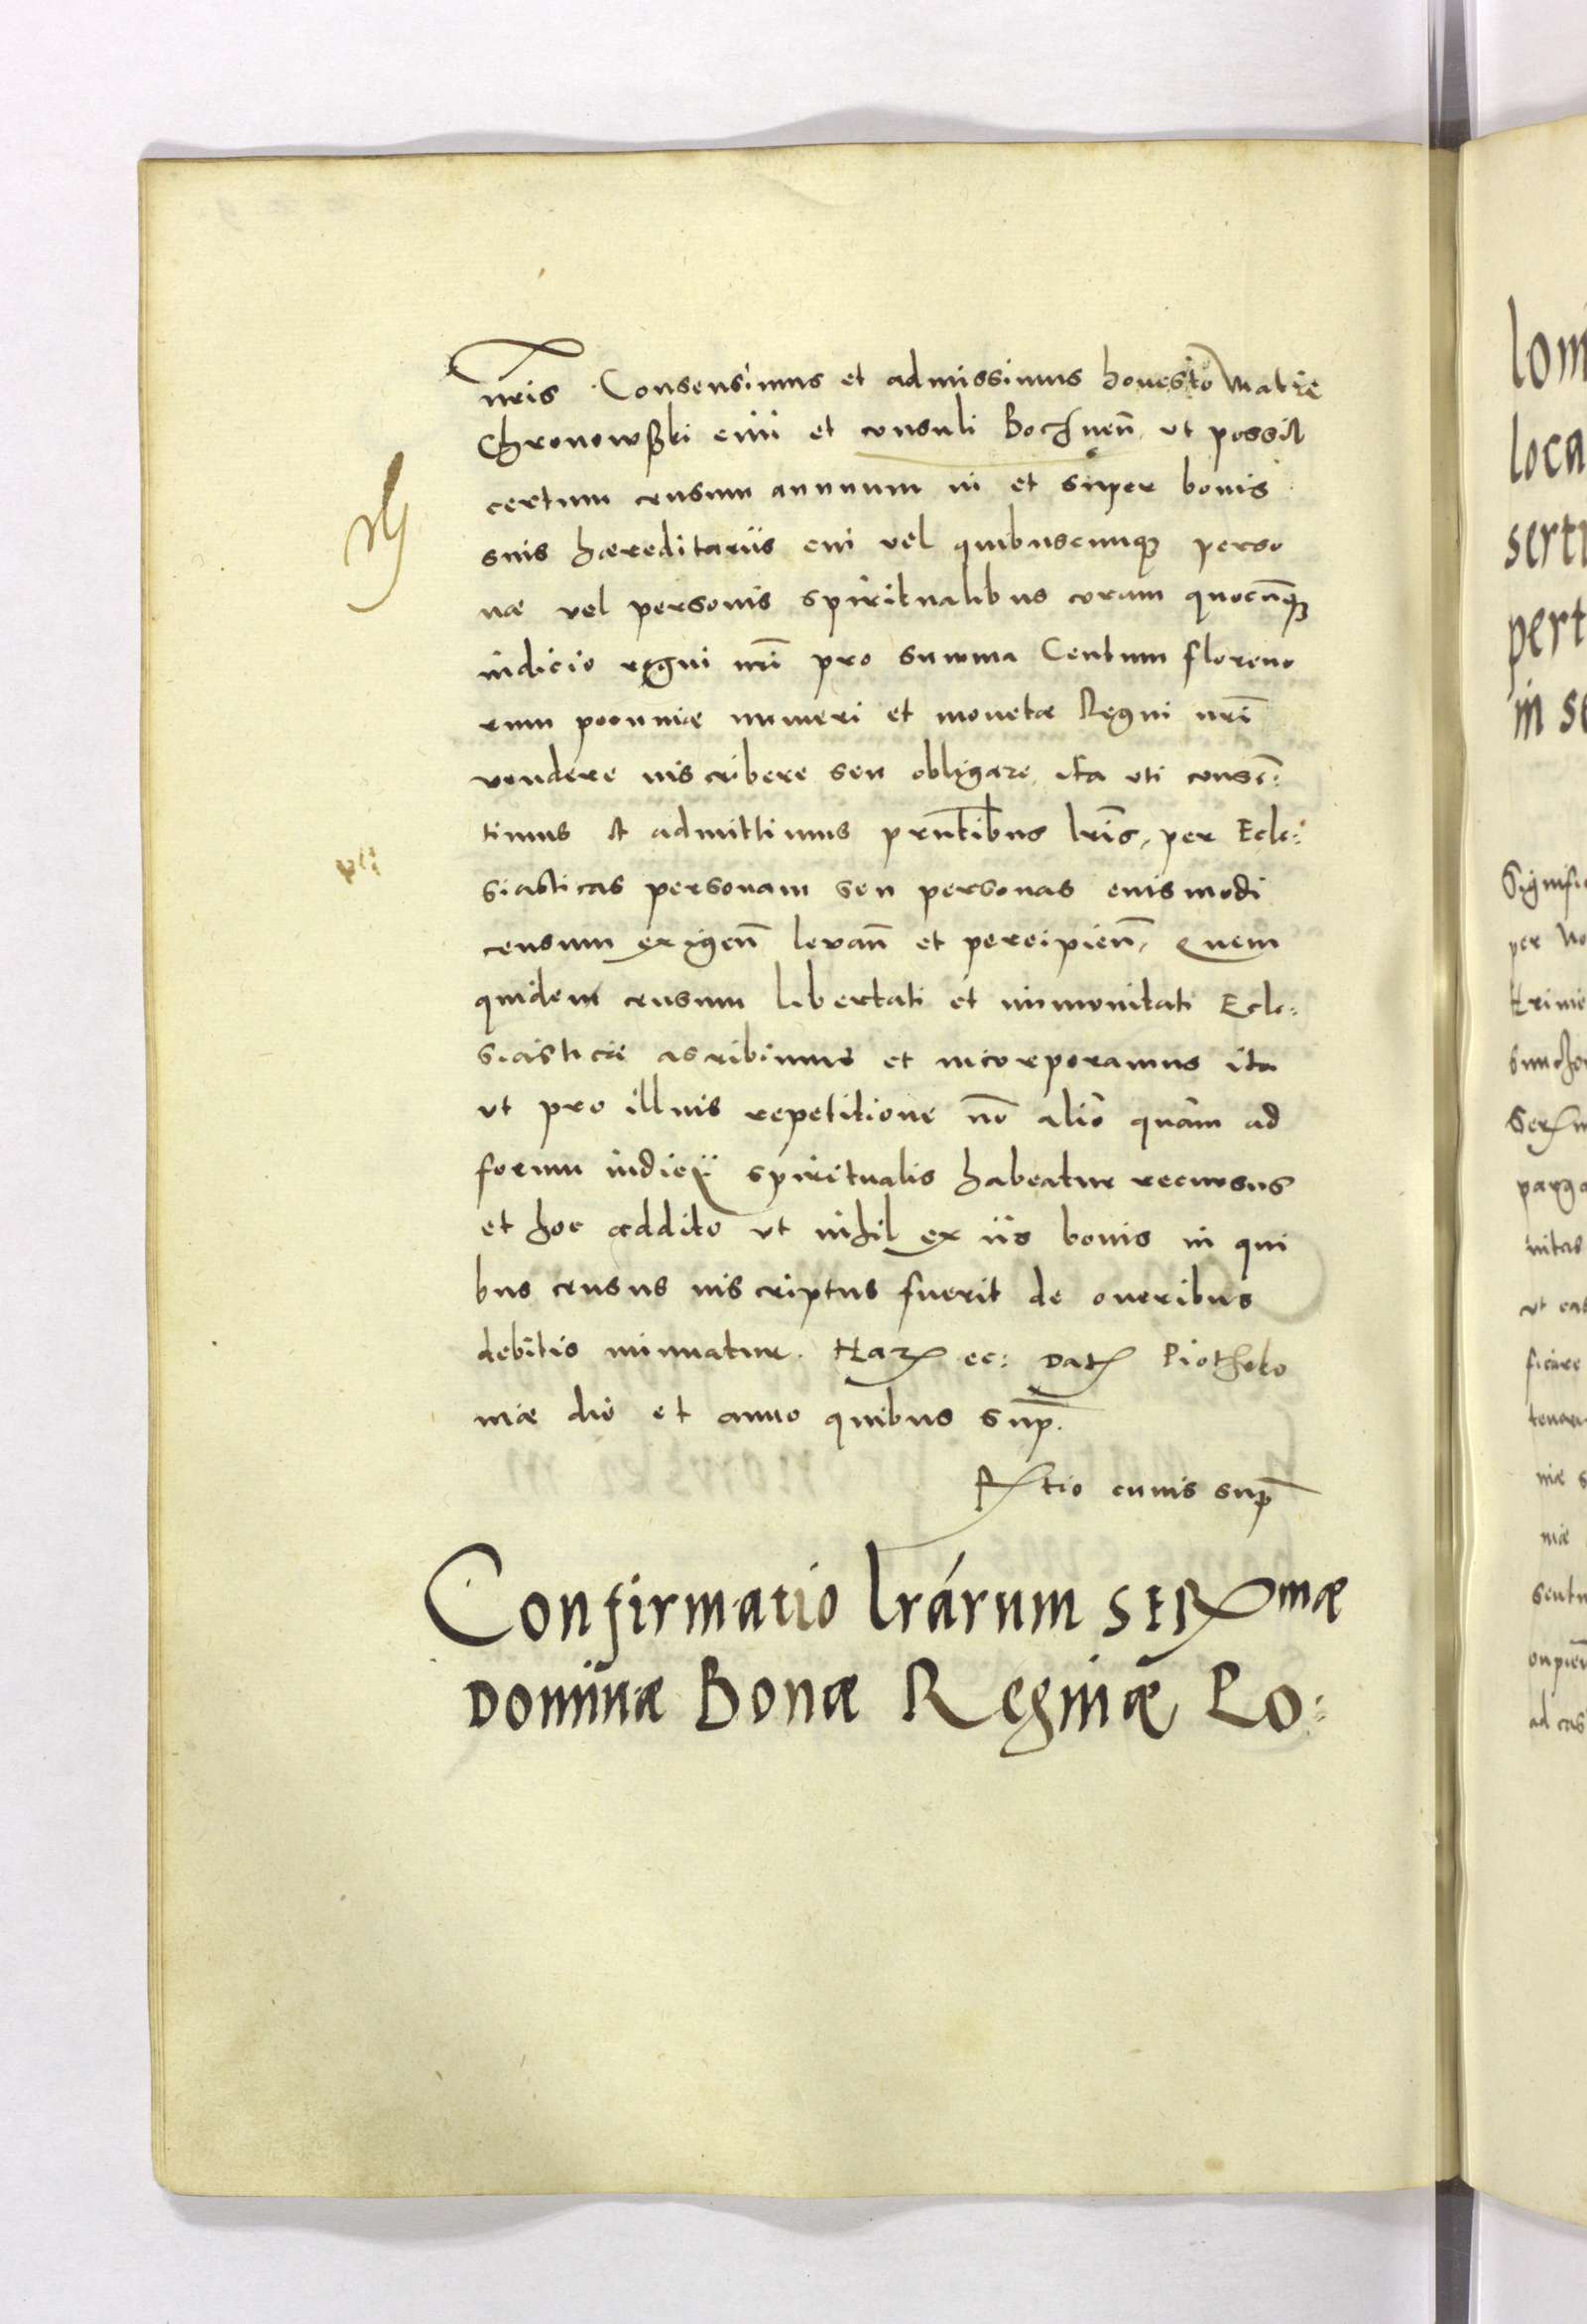 nris Consensimus et admissimus honesto Matiæ
Chronowski civi et consuli Bochnen̄ ut possit
certum censum annuum in et super bonis
suis hæreditariis cui vel quibuscunqʒ perso
næ vel personis spiritualibus coram quocunqʒ
iudicio regni nr̄i pro summa Centum floreno
rum pecuniæ numeri et monetæ Regni nr̄i
vendere inscribere seu obligare ita uti consē:
timus et admittimus prntibus lr̄is, per Ecle:
siasticas personam seu personas eiusmodi
censum exigen̄ levan̄ et percipien̄, Quem
quidem censum libertati et immunitati Ecle:
siasticæ ascribimus et incorporamus ita
ut pro illius repetitione nō alio quam ad
forum iudicii spiritualis habeatur recursus
et hoc addito ut nihil ex iis bonis in qui
bus census inscriptus fuerit de oneribus
debitis minuatur. Har ec: Dat Piotrko
niæ die et anno quibus sup.
Rtio cuius sup
Confirmatio lrārum sermæ
Dominæ Bonæ Reginæ Po:
lom
loca
serti
pert
in se
Signifi
per No